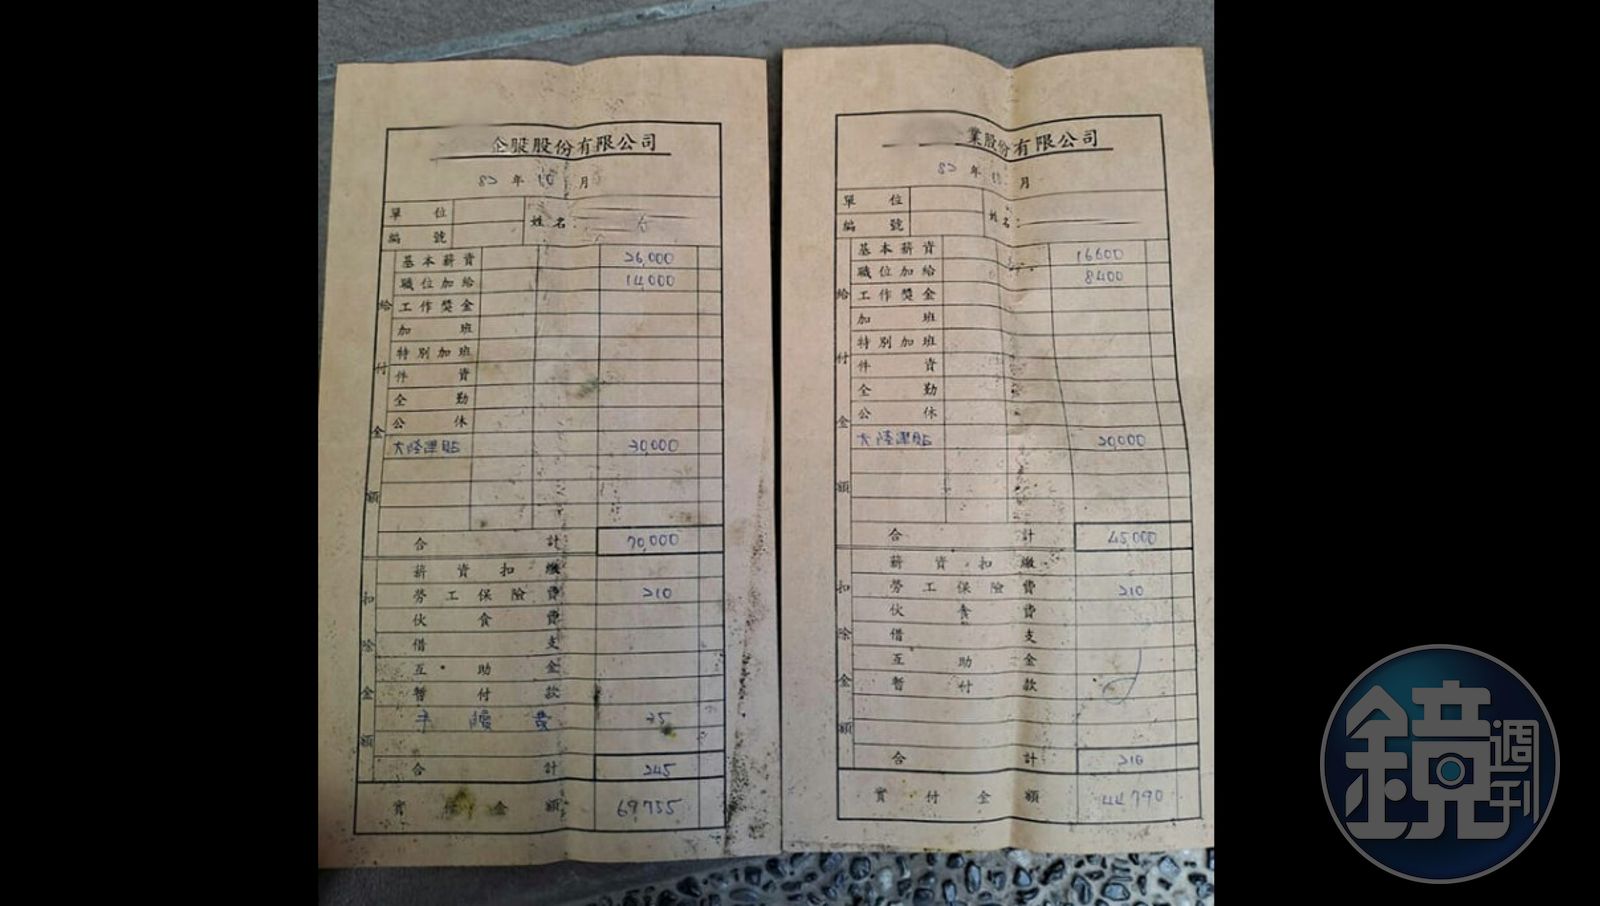 股份有限公司
82 年 10 月
單位
編號
姓名：
給付金額
基本薪資 26,000
職位加給 14,000
工作獎金
加班
特別加班
件資
全勤
公休
大陸津貼 30,000
合計 70,000
扣除金額
薪資扣繳
勞工保險費 210
伙食費
借支
互助金
暫付款
手續費 35
合計 245
實付金額 69,755
業股份有限公司
82 年 月
單位
編號
姓名：
給付金額
基本薪資 16600
職位加給 8400
工作獎金
加班
特別加班
件資
全勤
公休
大陸津貼 20,000
合計 45,000
扣除金額
薪資扣繳
勞工保險費 210
伙食費
借支
互助金
暫付款
合計 210
實付金額 44,790
鏡週刊